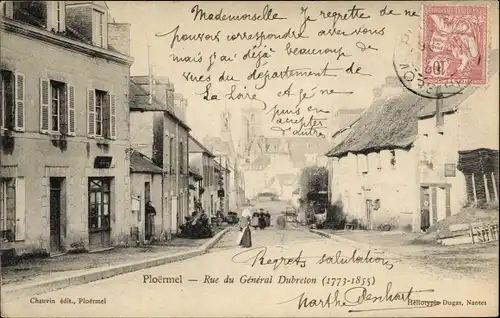 Mademoselle, Je regrette de ne
pouvoir correspondre avec vous
mais j'ai déjà beaucoup de
vues du département de
La Loire, et je n'en
puis en
accepter
d'autre
Ploërmel — Rue du Général Dubreton (1773-1855)
Regrets, salutations
Marthe
Chauvin édit., Ploërmel
Héliotypie Dugas, Nantes